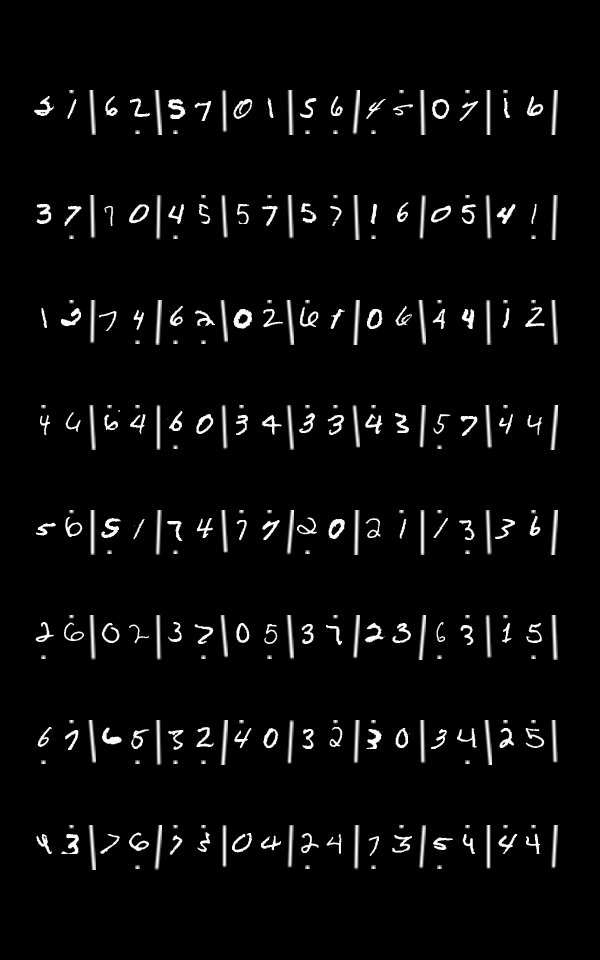 5 1 | 6 2 | 5 7 | 0 1 | 5 6 | 4 5 | 0 7 | 1 6 |
3 7 | 7 0 | 4 5 | 5 7 | 5 7 | 1 6 | 0 5 | 4 1 |
1 2 | 7 4 | 6 2 | 0 2 | 6 1 | 0 6 | 4 4 | 1 2 |
4 6 | 6 4 | 6 0 | 3 4 | 3 3 | 4 3 | 5 7 | 4 4 |
5 6 | 5 1 | 7 4 | 7 7 | 2 0 | 2 1 | 1 3 | 3 6 |
2 6 | 0 2 | 3 7 | 0 5 | 3 7 | 2 3 | 6 3 | 1 5 |
6 7 | 6 5 | 3 2 | 4 0 | 3 2 | 3 0 | 3 4 | 2 5 |
4 3 | 7 6 | 7 3 | 0 4 | 2 4 | 7 3 | 5 4 | 4 4 |